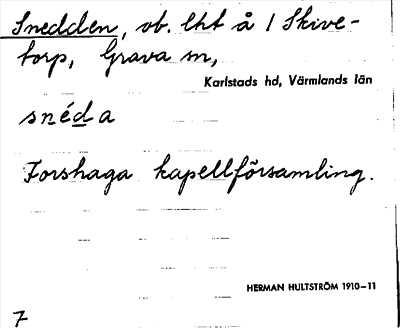 Snedden, ob. lht å 1 Skive-
torp, Grava sn,
Karlstads hd, Värmlands län
snéda
Forshaga kapellförsamling.
HERMAN HULTSTRÖM 1910-11
7